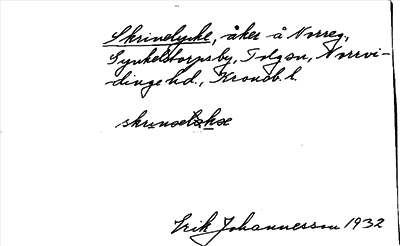 Skrinelycke, åker å Norreg.,
Synkelstorpsby, Tolgsn, Norrvi-
dinge hd., Kronob. l.
Erik Johannesson 1932